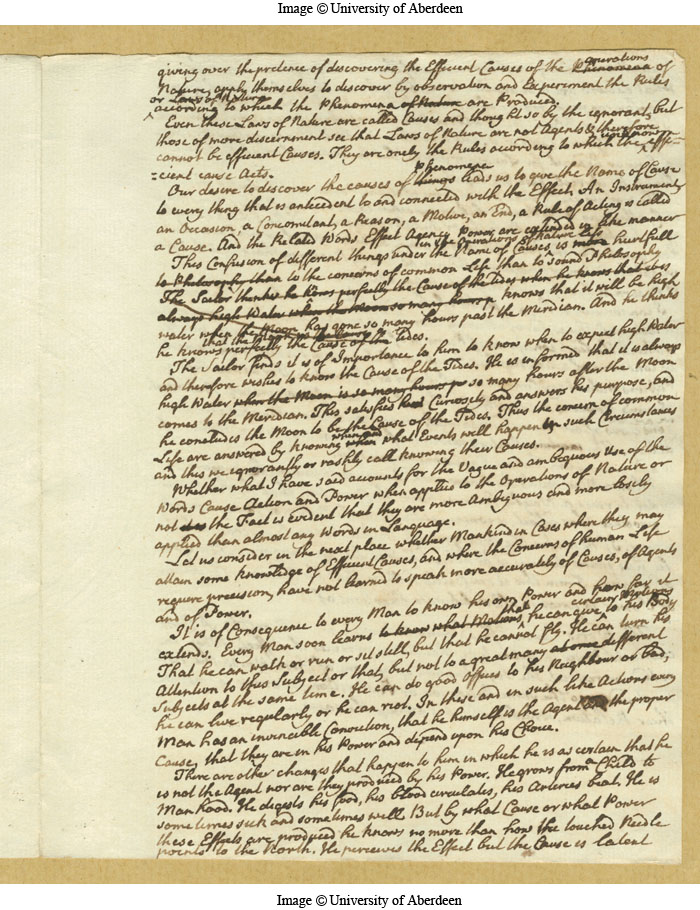 Image © University of Aberdeen
giving over the pretence of discovering the Efficient Causes of the Phenomena operations of
Nature, apply themselves to discover by observation and Experiment the Rules
or Laws of Nature
according to which the Phenomena of Nature are Produced.
Even these Laws of Nature are called Causes and thought so by the ignorant, but
those of more discernment see that Laws of Nature are not Agents & therefore
cannot be efficient Causes. They are onely the Rules according to which the effi=
=cient cause Acts.
Phenomena
Our desire to discover the causes of things leads us to give the Name of Cause
to every thing that is antecedent to and connected with the Effect. An Instrument,
an Occasion, a Concomitant, a Reason, a Motive, an End, a Rule of Acting is called
a Cause. And the Related Words Effect Agency Power, are extended in like manner
in the operations of Nature
This Confusion of different things under the Name of Causes, is more hurtfull
to Philosophy than to the concerns of common Life than to sound Philosophy
The Sailor thinks he knows perfectly the Cause of the Tides when he knows that it is
always high Water when the Moon so many hours knows that it will be high
water when the Moon has gone so many hours past the Meridian. And he thinks
he knows perfectly the Cause of the Tides.
The Sailor finds it is of Importance to him to know when to expect high Water
and therefore wishes to know the Cause of the Tides. He is informed that it is always
high Water when the Moon is so many hours so many hours after the Moon
comes to the Meridian. This satisfies his Curiosity and answers his purpose, and
he concludes the Moon to be the Cause of the Tides. Thus the concerns of common
Life are answered by knowing when what Events will happen in such Circumstances
and this we ignorantly or rashly call knowing their Causes.
Whether what I have said accounts for the Vague and ambiguous Use of the
words Cause Action and Power when applied to the Operations of Nature or
not the Fact is evident that they are more Ambiguous and more losely
applied than almost any Words in Language.
Let us consider in the next place whether Mankind in Cases where they may
attain some knowledge of Efficient Causes, and where the Concerns of human Life
require precision, have not learned to speak more accurately of Causes, of Agents
and of Power.
It is of Consequence to every Man to know his own Power and how far it
extends. Every Man soon learns to know what Motions, that he can give certain Motions to his Body
That he can walk or run or sit still, but that he cannot fly. He can turn his
Attention to this Subject or that, but not to a great many different
Subjects at the same time. He can do good Offices to his Neighbour or bad;
he can live regularly or he can riot. In these and in such like Actions every
Man has an invincible Conviction, that he himself is the Agent and the proper
Cause, that they are in his Power and depend upon his Choice.
There are other changes that happen to him in which he is as certain that he
is not the Agent nor are they produced by his Power. He grows from Child to
Manhood. He digests his food, his blood circulates, his Arteries beat. He is
sometimes sick and sometimes well But by what Cause or what Power
these Effects are produced he knows no more than how the touched Needle
points to the North. He perceives the Effect but the Cause is latent
Image © University of Aberdeen